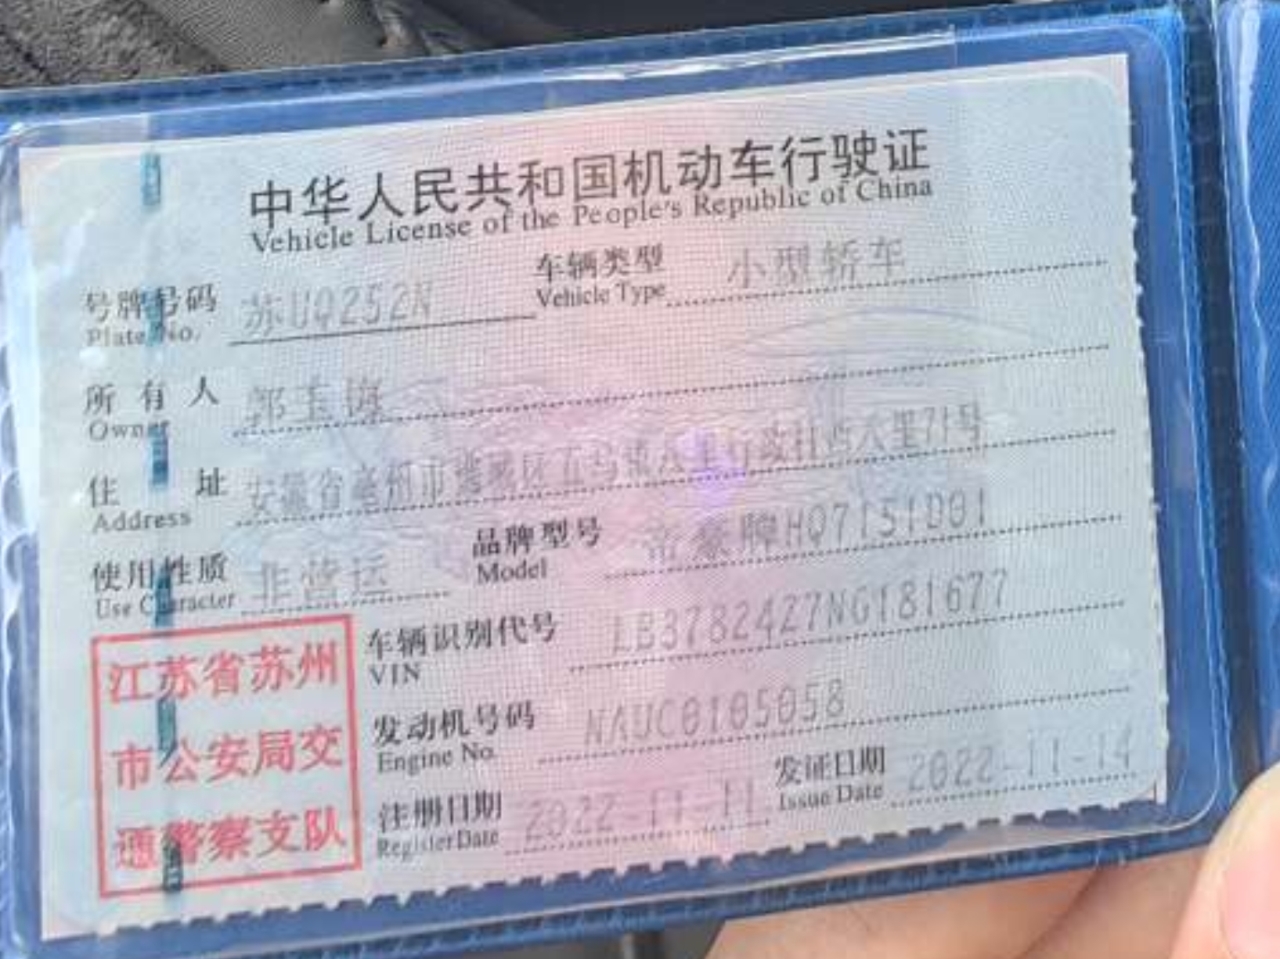 中华人民共和国机动车行驶证
Vehicle License of the People's Republic of China
号牌号码 苏UQ252N 车辆类型 小型轿车
Plate No. Vehicle Type
所有人 郭玉
Owner
住址 安徽省亳州市谯城区五马镇 行政村西六里71号
Address
使用性质 非营运 品牌型号 帝豪牌HQ7151D01
Use Character Model
车辆识别代号 LB3782427NG181677
VIN
发动机号码 NAUC0105058
Engine No.
注册日期 2022-11-11 发证日期 2022-11-14
Register Date Issue Date
江苏省苏州
市公安局交
通警察支队